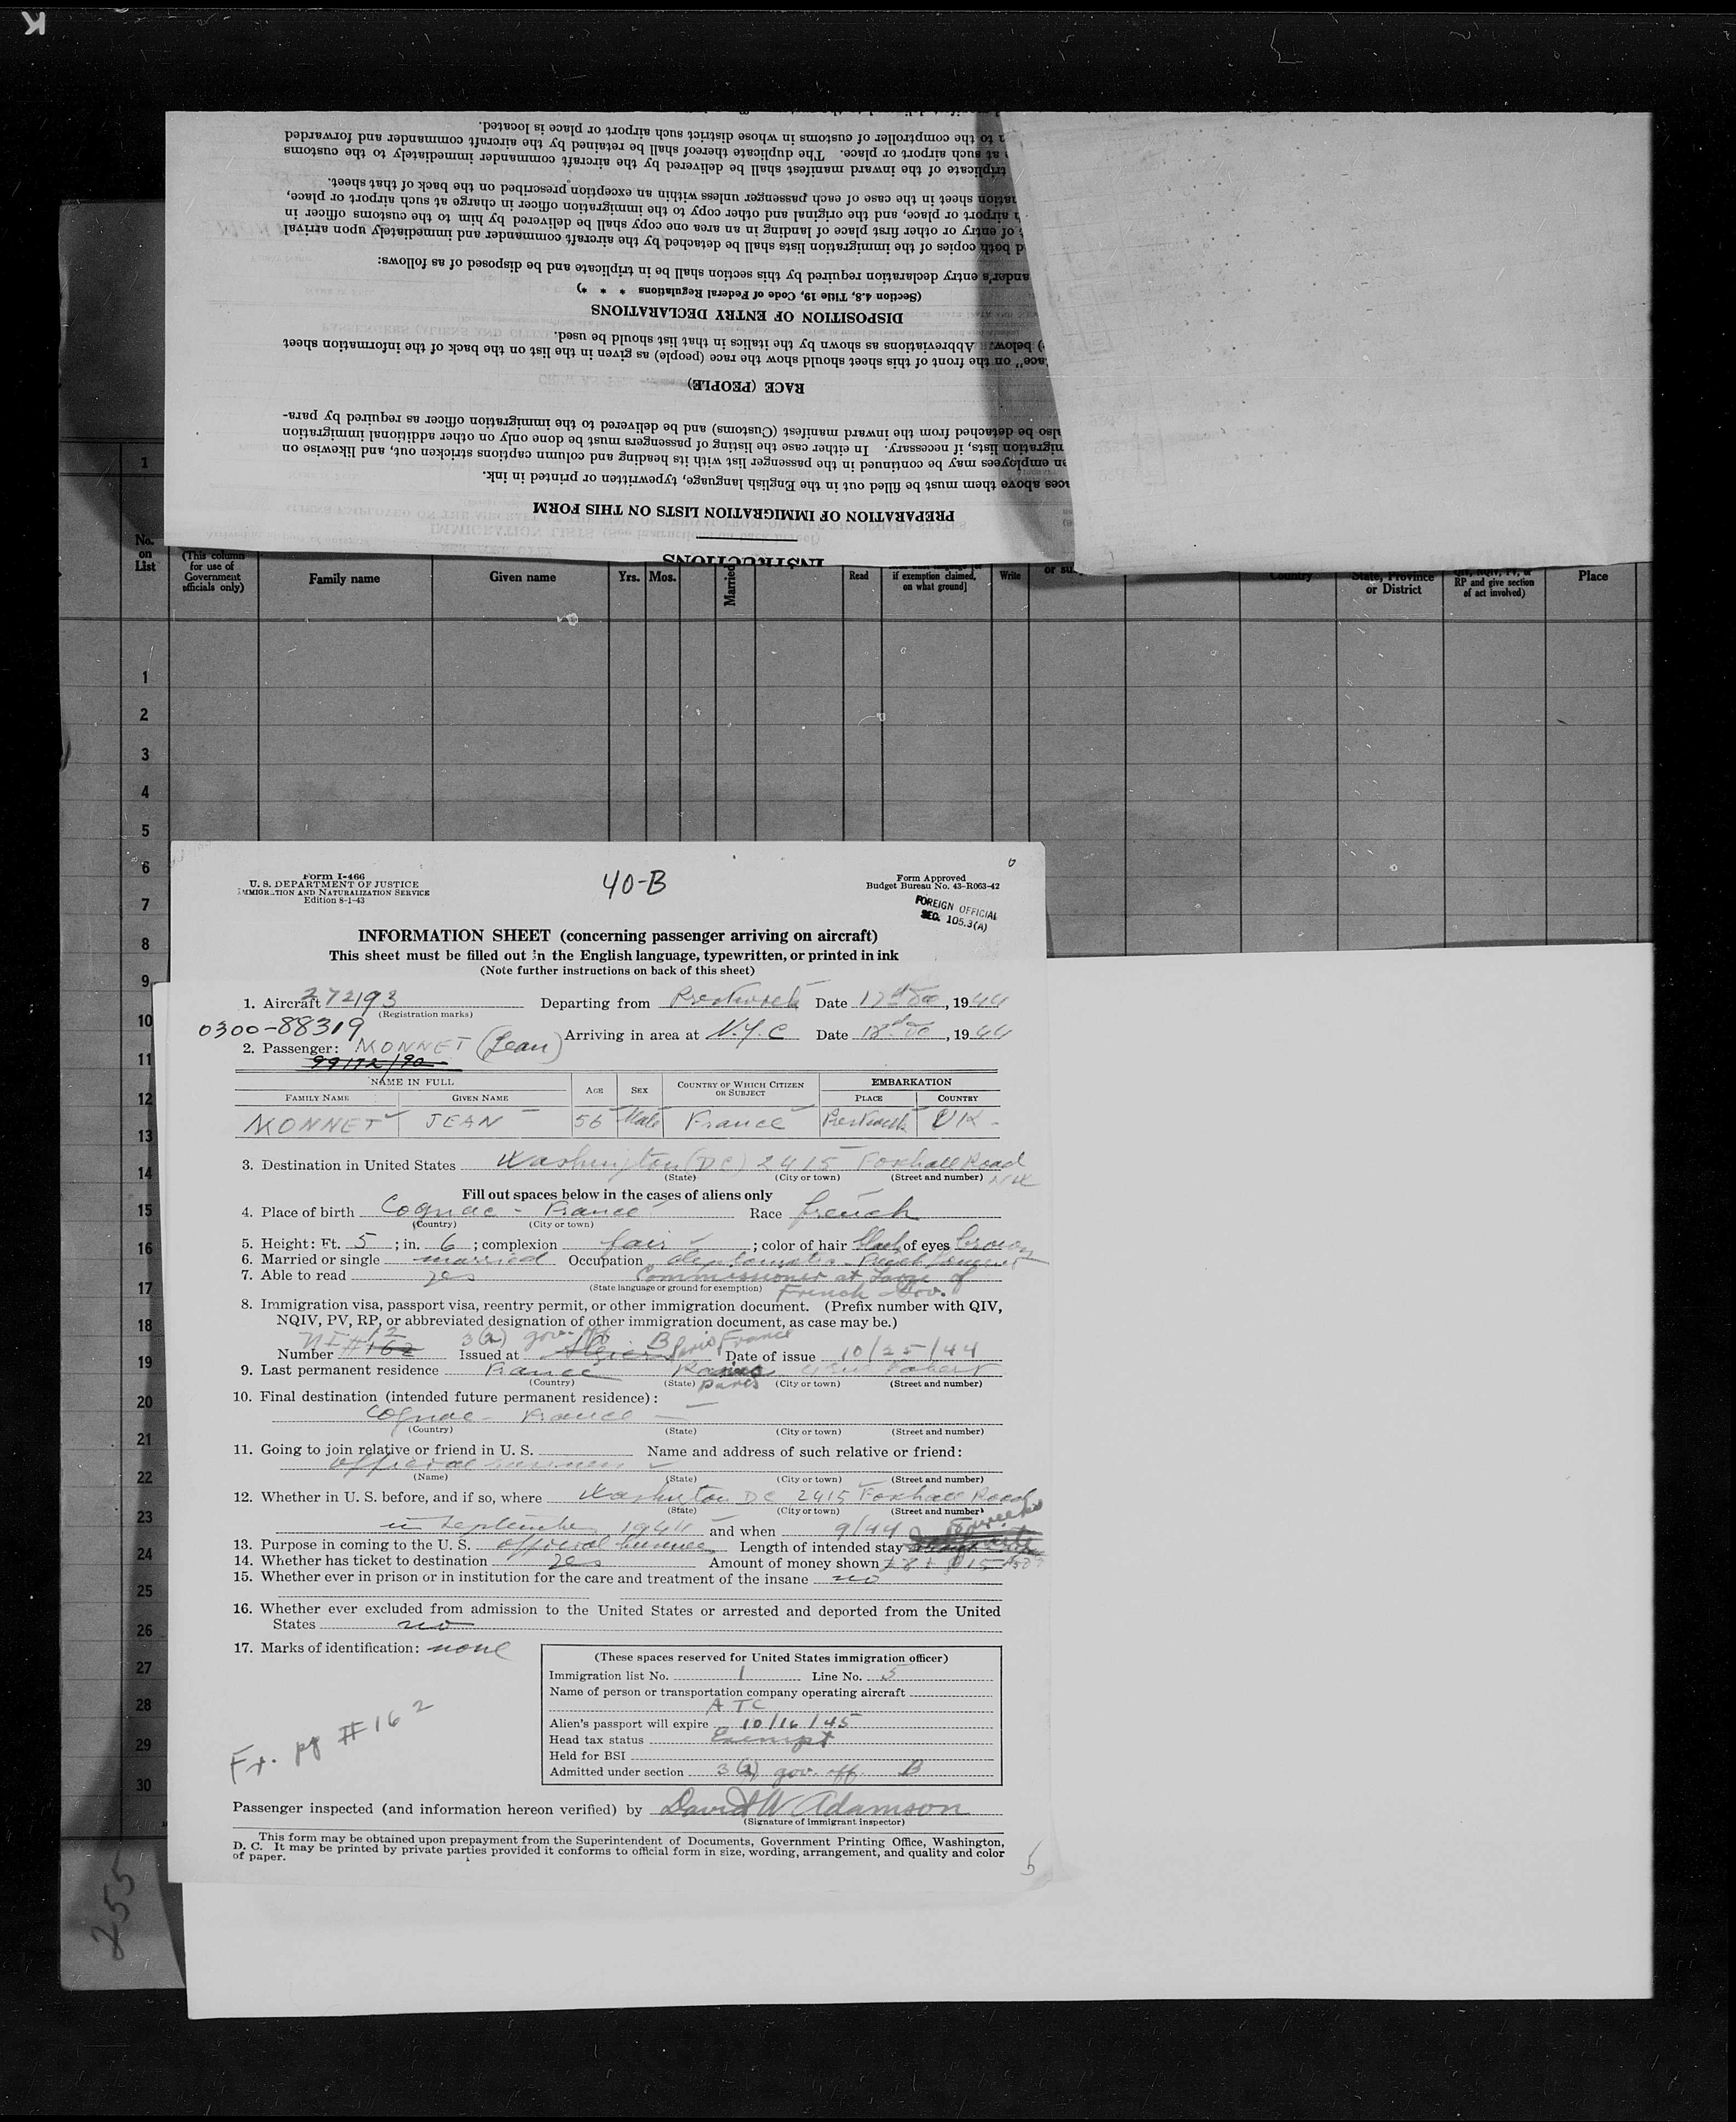 K
to the comptroller of customs in whose district such airport or place is located.
at such airport or place. The duplicate thereof shall be retained by the aircraft commander and forwarded
triplicate of the inward manifest shall be delivered by the aircraft commander immediately to the customs
sheet in the case of each passenger unless within an exception prescribed on the back of that sheet.
airport or place, and the original and other copy to the immigration officer in charge at such airport or place,
of entry or other first place of landing in an area one copy shall be delivered by him to the customs officer in
both copies of the immigration lists shall be detached by the aircraft commander and immediately upon arrival
ander's entry declaration required by this section shall be in triplicate and be disposed of as follows:
(Section 4.8, Title 19, Code of Federal Regulations * * *)
DISPOSITION OF ENTRY DECLARATIONS
below. Abbreviations as shown by the italics in that list should be used.
ace" on the front of this sheet should show the race (people) as given in the list on the back of the information sheet
RACE (PEOPLE)
also be detached from the inward manifest (Customs) and be delivered to the immigration officer as required by para-
migration lists, if necessary. In either case the listing of passengers must be done only on other additional immigration
en employees may be continued in the passenger list with its heading and column captions stricken out, and likewise on
aces above them must be filled out in the English language, typewritten or printed in ink.
PREPARATION OF IMMIGRATION LISTS ON THIS FORM
INSTRUCTIONS
1
No. on List
(This column for use of Government officials only)
Family name
Given name
Yrs.
Mos.
Married
Read
if exemption claimed, on what ground]
Write
Country
State, Province or District
RP and give section of act involved)
Place
1
2
3
4
5
6
7
8
9
10
11
12
13
14
15
16
17
18
19
20
21
22
23
24
25
26
27
28
29
30
255
Form I-466
U. S. DEPARTMENT OF JUSTICE
IMMIGRATION AND NATURALIZATION SERVICE
Edition 8-1-43
40-B
Form Approved
Budget Bureau No. 43-R063-42
FOREIGN OFFICIAL
SEC. 105.3(A)
INFORMATION SHEET (concerning passenger arriving on aircraft)
This sheet must be filled out in the English language, typewritten, or printed in ink
(Note further instructions on back of this sheet)
1. Aircraft 272193 Departing from Prestwick Date 17 Dec, 1944
(Registration marks)
0300-88319 Arriving in area at N.Y.C Date 18 Dec, 1944
2. Passenger: MONNET (Jean)
99172/90
NAME IN FULL AGE SEX COUNTRY OF WHICH CITIZEN OR SUBJECT EMBARKATION
FAMILY NAME GIVEN NAME PLACE COUNTRY
MONNET JEAN 56 Male France Prestwick UK
3. Destination in United States Washington (DC) 2415 Foxhall Road NW
(State) (City or town) (Street and number)
Fill out spaces below in the cases of aliens only
4. Place of birth Cognac - France Race french
(Country) (City or town)
5. Height: Ft. 5; in. 6; complexion fair; color of hair black of eyes brown
6. Married or single married Occupation
7. Able to read yes Commissioner at Large of
(State language or ground for exemption) French Gov.
8. Immigration visa, passport visa, reentry permit, or other immigration document. (Prefix number with QIV,
NQIV, PV, RP, or abbreviated designation of other immigration document, as case may be.)
12 3(2) gov. off B Paris France
Number #162 Issued at Algiers Date of issue 10/25/44
9. Last permanent residence France Paris
(Country) (State) (City or town) (Street and number)
10. Final destination (intended future permanent residence):
Cognac - France
(Country) (State) (City or town) (Street and number)
11. Going to join relative or friend in U. S. Name and address of such relative or friend:
official business
(Name) (State) (City or town) (Street and number)
12. Whether in U. S. before, and if so, where Washington DC 2415 Foxhall Road
(State) (City or town) (Street and number)
in September 1944 and when 9/44
13. Purpose in coming to the U. S. official business Length of intended stay
14. Whether has ticket to destination yes Amount of money shown
15. Whether ever in prison or in institution for the care and treatment of the insane no
16. Whether ever excluded from admission to the United States or arrested and deported from the United
States no
17. Marks of identification: none
Fr. pp #162
(These spaces reserved for United States immigration officer)
Immigration list No. 1 Line No. 5
Name of person or transportation company operating aircraft
ATC
Alien's passport will expire 10/16/45
Head tax status Exempt
Held for BSI
Admitted under section 3(2) gov. off B
Passenger inspected (and information hereon verified) by David W Adamson
(Signature of immigrant inspector)
This form may be obtained upon prepayment from the Superintendent of Documents, Government Printing Office, Washington,
D. C. It may be printed by private parties provided it conforms to official form in size, wording, arrangement, and quality and color
of paper.
5